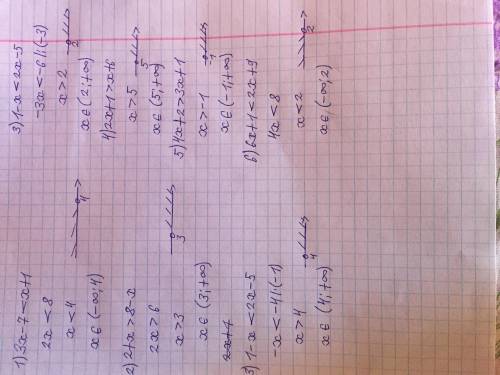 1) 3x-7<x+1
2x<8
x<4
4
x∈(-∞;4)
2) 2+x>8-x
2x>6
x>3
3
x∈(3;+∞)
2x+1
3) 1-x<2x-5
-x<-4|:(-1)
x>4
4
x∈(4;+∞)
3) 1-x<2x-5
-3x<-6|:(-3)
x>2
2
x∈(2;+∞)
4) 2x+1>x+6
x>5
5
x∈(5;+∞)
5) 4x+2>3x+1
x>-1
-1
x∈(-1;+∞)
6) 6x+1<2x+9
4x<8
x<2
2
x∈(-∞;2)